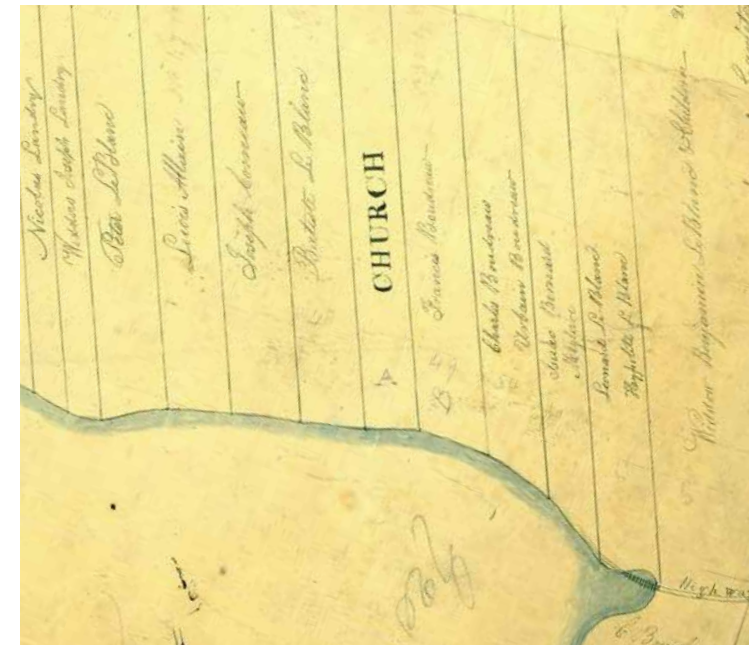 Nicolas Landry
Widow Joseph Landry
Peter LeBlanc
Louis Allain
Joseph Comeau
Batiste LeBlanc
CHURCH
A
Francis Boudreau
B 49
Charles Boudreau
Urbain Boudreau
Bernard
Leonard LeBlanc
Hypolite LeBlanc
Widow Benjamin LeBlanc & Children
High way